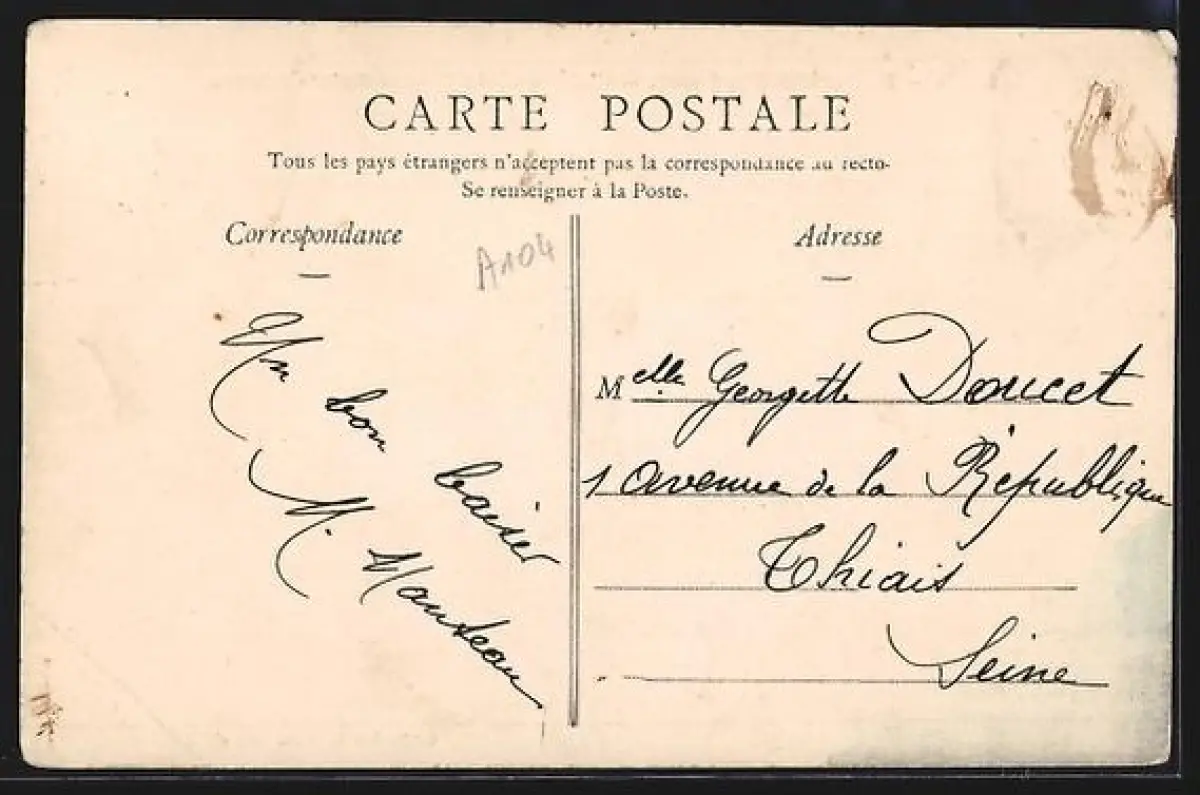 CARTE POSTALE
Tous les pays étrangers n'acceptent pas la correspondance au recto-
Se renseigner à la Poste.
Correspondance
Adresse
A104
Un bon baiser
M.
Melle Georgette Doucet
1 avenue de la République
Thiais
Seine